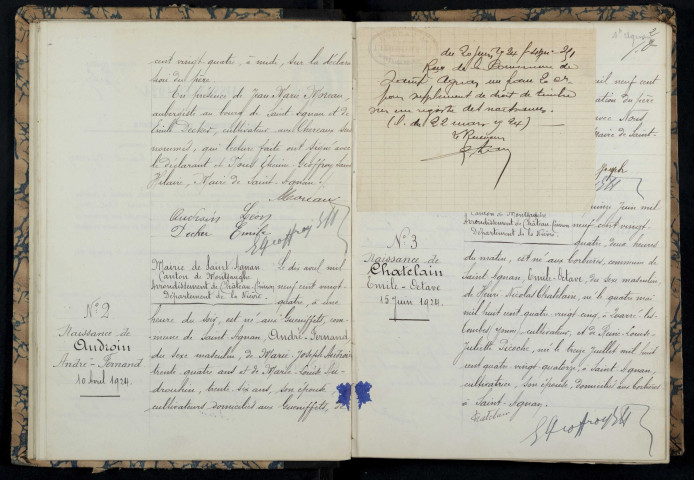 cent vingt-quatre, à midi, sur la déclara-
tion du père
En présence de Jean-Marie Moreau,
aubergiste au bourg de Saint Agnan et de
Emile Decher, cultivateur
nommés, qui lecture faite ont signé avec
le Déclarant et Nous Etienne Geoffroy Saint
Hilaire, Maire de Saint-Agnan.
Moreau
Audroin Léon
Decher Emile
E Geoffroy StH
N° 2
Naissance de
Audroin
André-Fernand
10 Avril 1924.
Mairie de Saint Agnan
Canton de Montsauche
Arrondissement de Château-Chinon
Département de la Nièvre.
Le dix avril mil
neuf cent vingt-
quatre, à
heure du soir, est né aux Gueniffets, com-
mune de Saint-Agnan, André-Fernand
du sexe masculin, de Marie Joseph Audroin
trente quatre ans et de Marie Louise
trente six ans, son épouse,
cultivateurs domiciliés aux Gueniffets, de
St Agnan
du 20 juin 1924
Reçu de la Commune de
Saint Agnan un franc
pour supplément de droit de timbre
sur un registre des naissances
(L. du 22 mars 1924)
Le Receveur
mil neuf cent
ration du père
avec Nous
Maire de Saint-
Joseph
StH
N° 3
Naissance de
Chatelain
Emile-Octave
15 Juin 1924.
Canton de Montsauche
Arrondissement de Château-Chinon
Département de la Nièvre
quinze Juin mil
neuf cent vingt-
quatre, deux heures
du matin, est né aux Corbières, commune de
Saint Agnan, Emile-Octave, du sexe masculin,
de Henri Nicolas Chatelain, né le quatre mai
mil huit cent quatre vingt cinq, à
(Yonne), cultivateur, et de Reine-Louise-
Juliette Picoche, née le treize Juillet mil huit
cent quatre vingt-quatorze, à Saint-Agnan,
cultivatrice, son épouse, domiciliés aux Corbières
à Saint-Agnan.
Chatelain
E Geoffroy StH